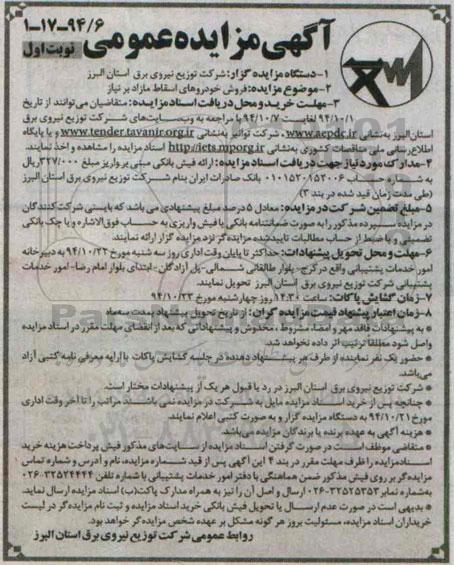 آگهی مزایده عمومی
۱-۱۷-۹۴/۶
نوبت اول
۱-دستگاه مزایده گزار: شرکت توزیع نیروی برق استان البرز
۲-موضوع مزایده: فروش خودروهای اسقاط مازاد بر نیاز
۳-مهلت خرید و محل دریافت اسناد مزایده: متقاضیان می توانند از تاریخ
۹۴/۱۰/۱ لغایت ۹۴/۱۰/۷ با مراجعه به وب سایت های شرکت توزیع نیروی برق
استان البرز به نشانی www.aepdc.ir، شرکت توانیر به نشانی www.tender.tavanir.org.ir و یا پایگاه
اطلاع رسانی ملی مناقصات کشوری به نشانی http://iets.mporg.ir اسناد مزایده را مشاهده و اخذ نمایند.
۴-مدارک مورد نیاز جهت دریافت اسناد مزایده: ارائه فیش بانکی مبنی بر واریز مبلغ ۳۲۷/۰۰۰ ریال
به شماره حساب ۰۱۰۱۵۲۰۱۵۲۰۰۶ بانک صادرات ایران بنام شرکت توزیع نیروی برق استان البرز
(طی مدت زمان قید شده در بند ۳)
۵-مبلغ تضمین شرکت در مزایده: معادل ۵ درصد مبلغ پیشنهادی می باشد که بایستی شرکت کنندگان
در مزایده سپرده مذکور را به صورت ضمانتنامه بانکی یا فیش واریزی به حساب فوق الاشاره و یا چک بانکی
تضمینی و یا ضبط از حساب مطالبات تایید شده مزایده گر نزد مزایده گزار ارائه نمایند.
۶-مهلت و محل تحویل پیشنهادات: حداکثر تا پایان وقت اداری روز سه شنبه مورخ ۹۴/۱۰/۲۲ به دبیرخانه
امور خدمات پشتیبانی واقع در کرج-بلوار طالقانی شمالی-پل آزادگان-ابتدای بلوار امام رضا-امور خدمات
پشتیبانی شرکت توزیع نیروی برق استان البرز تحویل نمایند.
۷-زمان گشایش پاکات: ساعت ۱۴:۳۰ روز چهارشنبه مورخ ۹۴/۱۰/۲۳
۸-زمان اعتبار پیشنهاد قیمت مزایده گران: از تاریخ تحویل پیشنهاد بمدت سه ماه
به پیشنهادات فاقد مهر و امضا، مشروط، مخدوش و پیشنهاداتی که بعد از انقضای مهلت مقرر در اسناد مزایده
واصل شود مطلقا ترتیب اثر داده نخواهد شد.
حضور یک نفر نماینده از طرف هر پیشنهاد دهنده در جلسه گشایش پاکات با ارایه معرفی نامه کتبی آزاد
می باشد.
شرکت توزیع نیروی برق استان البرز در رد یا قبول هر یک از پیشنهادات مختار است.
چنانچه پس از خرید اسناد مزایده مایل به شرکت در مزایده نمی باشند مراتب را تا آخر وقت اداری
مورخ ۹۴/۱۰/۲۱ به دستگاه مزایده گزار و به صورت کتبی اعلام نمایند.
هزینه آگهی به عهده برنده یا برندگان مزایده می باشد.
متقاضی موظف است در صورت گرفتن اسناد مزایده از سایت های مذکور فیش پرداخت هزینه خرید
اسناد مزایده را ظرف مهلت مقرر در بند ۴ این آگهی پس از قید شماره مزایده، نام و آدرس و شماره تماس
مزایده گر بر روی فیش مذکور ضمن هماهنگی با دفتر امور خدمات پشتیبانی با شماره تلفن ۰۲۶-۳۲۵۲۴۴۴۴
به شماره نمابر ۰۲۶-۳۲۵۲۵۳۵۳ ارسال و اصل آن را نیز به همراه مدارک پاکت (ب) اسناد مزایده ارسال نماید.
بدیهی است در صورت عدم ارسال یا تحویل فیش بانکی خرید اسناد مزایده و ثبت نام مزایده گر در لیست
خریداران اسناد مزایده، مسئولیت بروز هر گونه مشکل بر عهده شخص مزایده گر خواهد بود.
روابط عمومی شرکت توزیع نیروی برق استان البرز